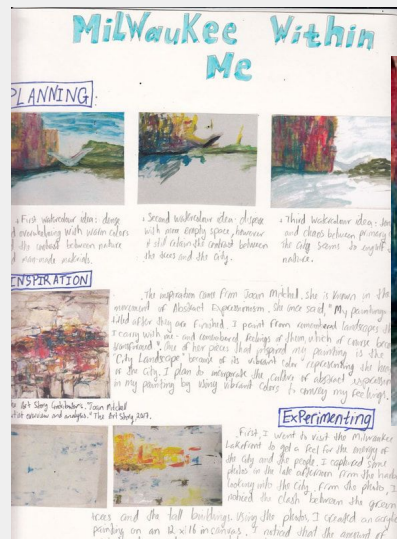 MiLWauKee Within
Me
PLANNING:
. First watercolour idea: dense
overwhelming with warm colors
the contrast between nature
man made materials.
. Second watercolour idea:
with more empty space, however
still retain the contrast between
the trees and the city.
. Third watercolour idea:
and clashes between primary
the city seems to
nature.
INSPIRATION
The inspiration came from Joan Mitchell. She is known in the
movement of Abstract Expressionism. She once said, "My paintings
after they are finished. I paint from remembered landscapes
I carry with me - and remembered feelings of them, which of course
transformed". One of her pieces that inspired my painting is the
"City Landscape" because of its vibrant color representing the
of the city. I plan to incorporate the culture of abstract expression
in my painting by using vibrant colors to convey my feelings.
Art Story Contributors. "Joan Mitchell
overview and analysis." The Art Story, 2017.
ExPerimenting
First, I went to visit the Milwaukee
Lakefront to get a feel for the energy of
the city and the people. I captured some
photos in the late afternoon from the
looking into the city. From the photos, I
noticed the clash between the green
trees and the tall buildings. Using the photos, I created an
painting on an 12 inch canvas. I noticed that the amount of